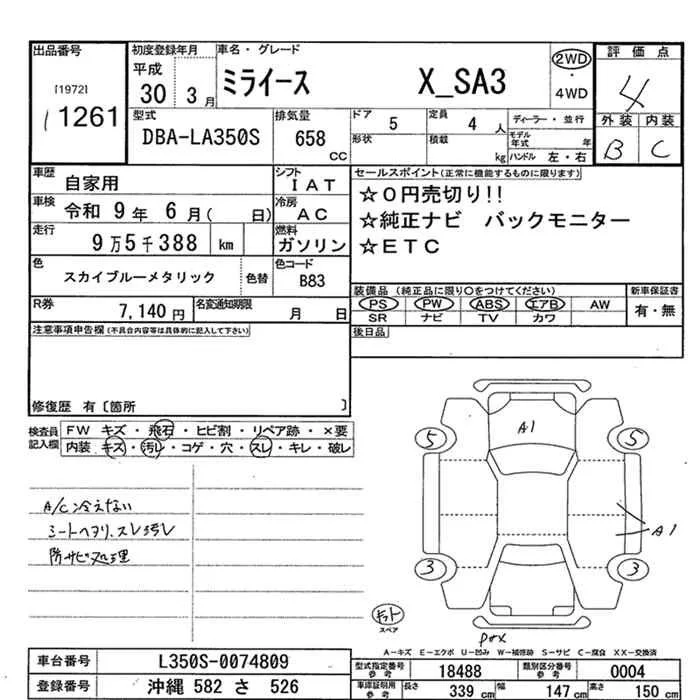 出品番号 初度登録年月 車名・グレード 評価点
[1972] 1261 平成 30 3月 ミライース X_SA3 2WD・4WD 4
型式 排気量 ドア 定員 ディーラー・並行 外装 内装
DBA-LA350S 658 CC 5 4人 モデル年式 年 B C
形状 積載 kg ハンドル 左・右
車歴 自家用 シフト IAT セールスポイント(正常に機能するものに限ります)
☆0円売切り!!
車検 令和 9年 6月( 日) 冷房 AC
☆純正ナビ バックモニター
走行 9万5千388 km 燃料 ガソリン
☆ETC
色 スカイブルーメタリック 色替 色コード B83
装備品 (純正品に限り○をつけてください) 新車保証書
PS PW ABS エアB AW 有・無
SR ナビ TV カワ
R券 7,140円 名変通知期限 月 日
後日品
注意事項申告欄(不具合内容等は具体的に記入して下さい)
修復歴 有〔箇所 〕
検査員記入欄 FW キズ・飛石・ヒビ割・リペア跡・×要
内装 キズ・汚レ・コゲ・穴・スレ・キレ・破レ
A1
5 5
A/C冷えない
シートヘタリ、スレ汚レ
防サビ処理
A1
3 3
キット
スペア
A-キズ E-エクボ U-凹み W-補修跡 S-サビ C-腐食 XX-交換済
車台番号 L350S-0074809
型式指定番号 18488 類別区分番号 0004
登録番号 沖縄 582 さ 526
車庫証明用参考 長さ 339 cm 幅 147 cm 高さ 150 cm